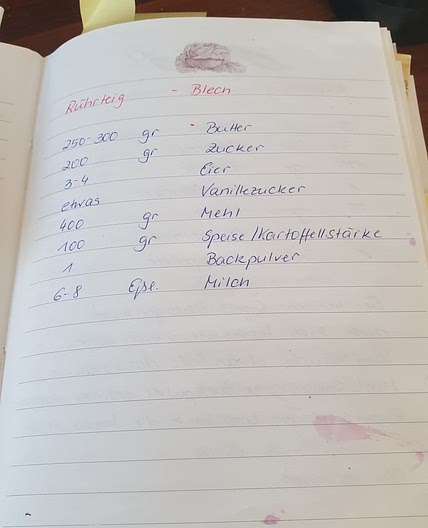 Rührteig - Blech
250-300 gr Butter
200 gr Zucker
3-4 Eier
etwas Vanillezucker
400 gr Mehl
100 gr Speise/Kartoffelstärke
1 Backpulver
6-8 Eßl. Milch